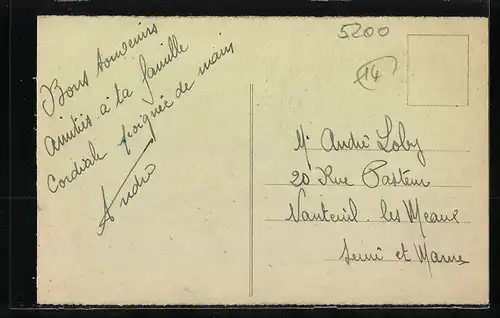 5200
14
Bons souvenirs
Amitiés à ta famille
Cordiale poignée de main
André
Mr André Loby
20 Rue Pasteur
Nanteuil les Meaux
Seine et Marne